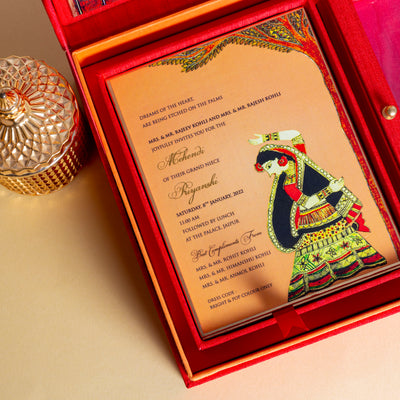 DREAMS OF THE HEART
ARE BEING ETCHED ON THE PALMS
MRS. & MR. RAJEEV KOHLI AND MRS. & MR. RAJESH KOHLI
JOYFULLY INVITES YOU FOR THE
Mehendi
OF THEIR GRAND NIECE
Priyanshi
SATURDAY, 8TH JANUARY, 2022
11:00 AM
FOLLOWED BY LUNCH
AT THE PALACE, JAIPUR
Best Compliments From
MRS. & MR. ROHIT KOHLI
MRS. & MR. HIMANSHU KOHLI
MRS. & MR. ANMOL KOHLI
DRESS CODE:
BRIGHT & POP COLOUR ONLY